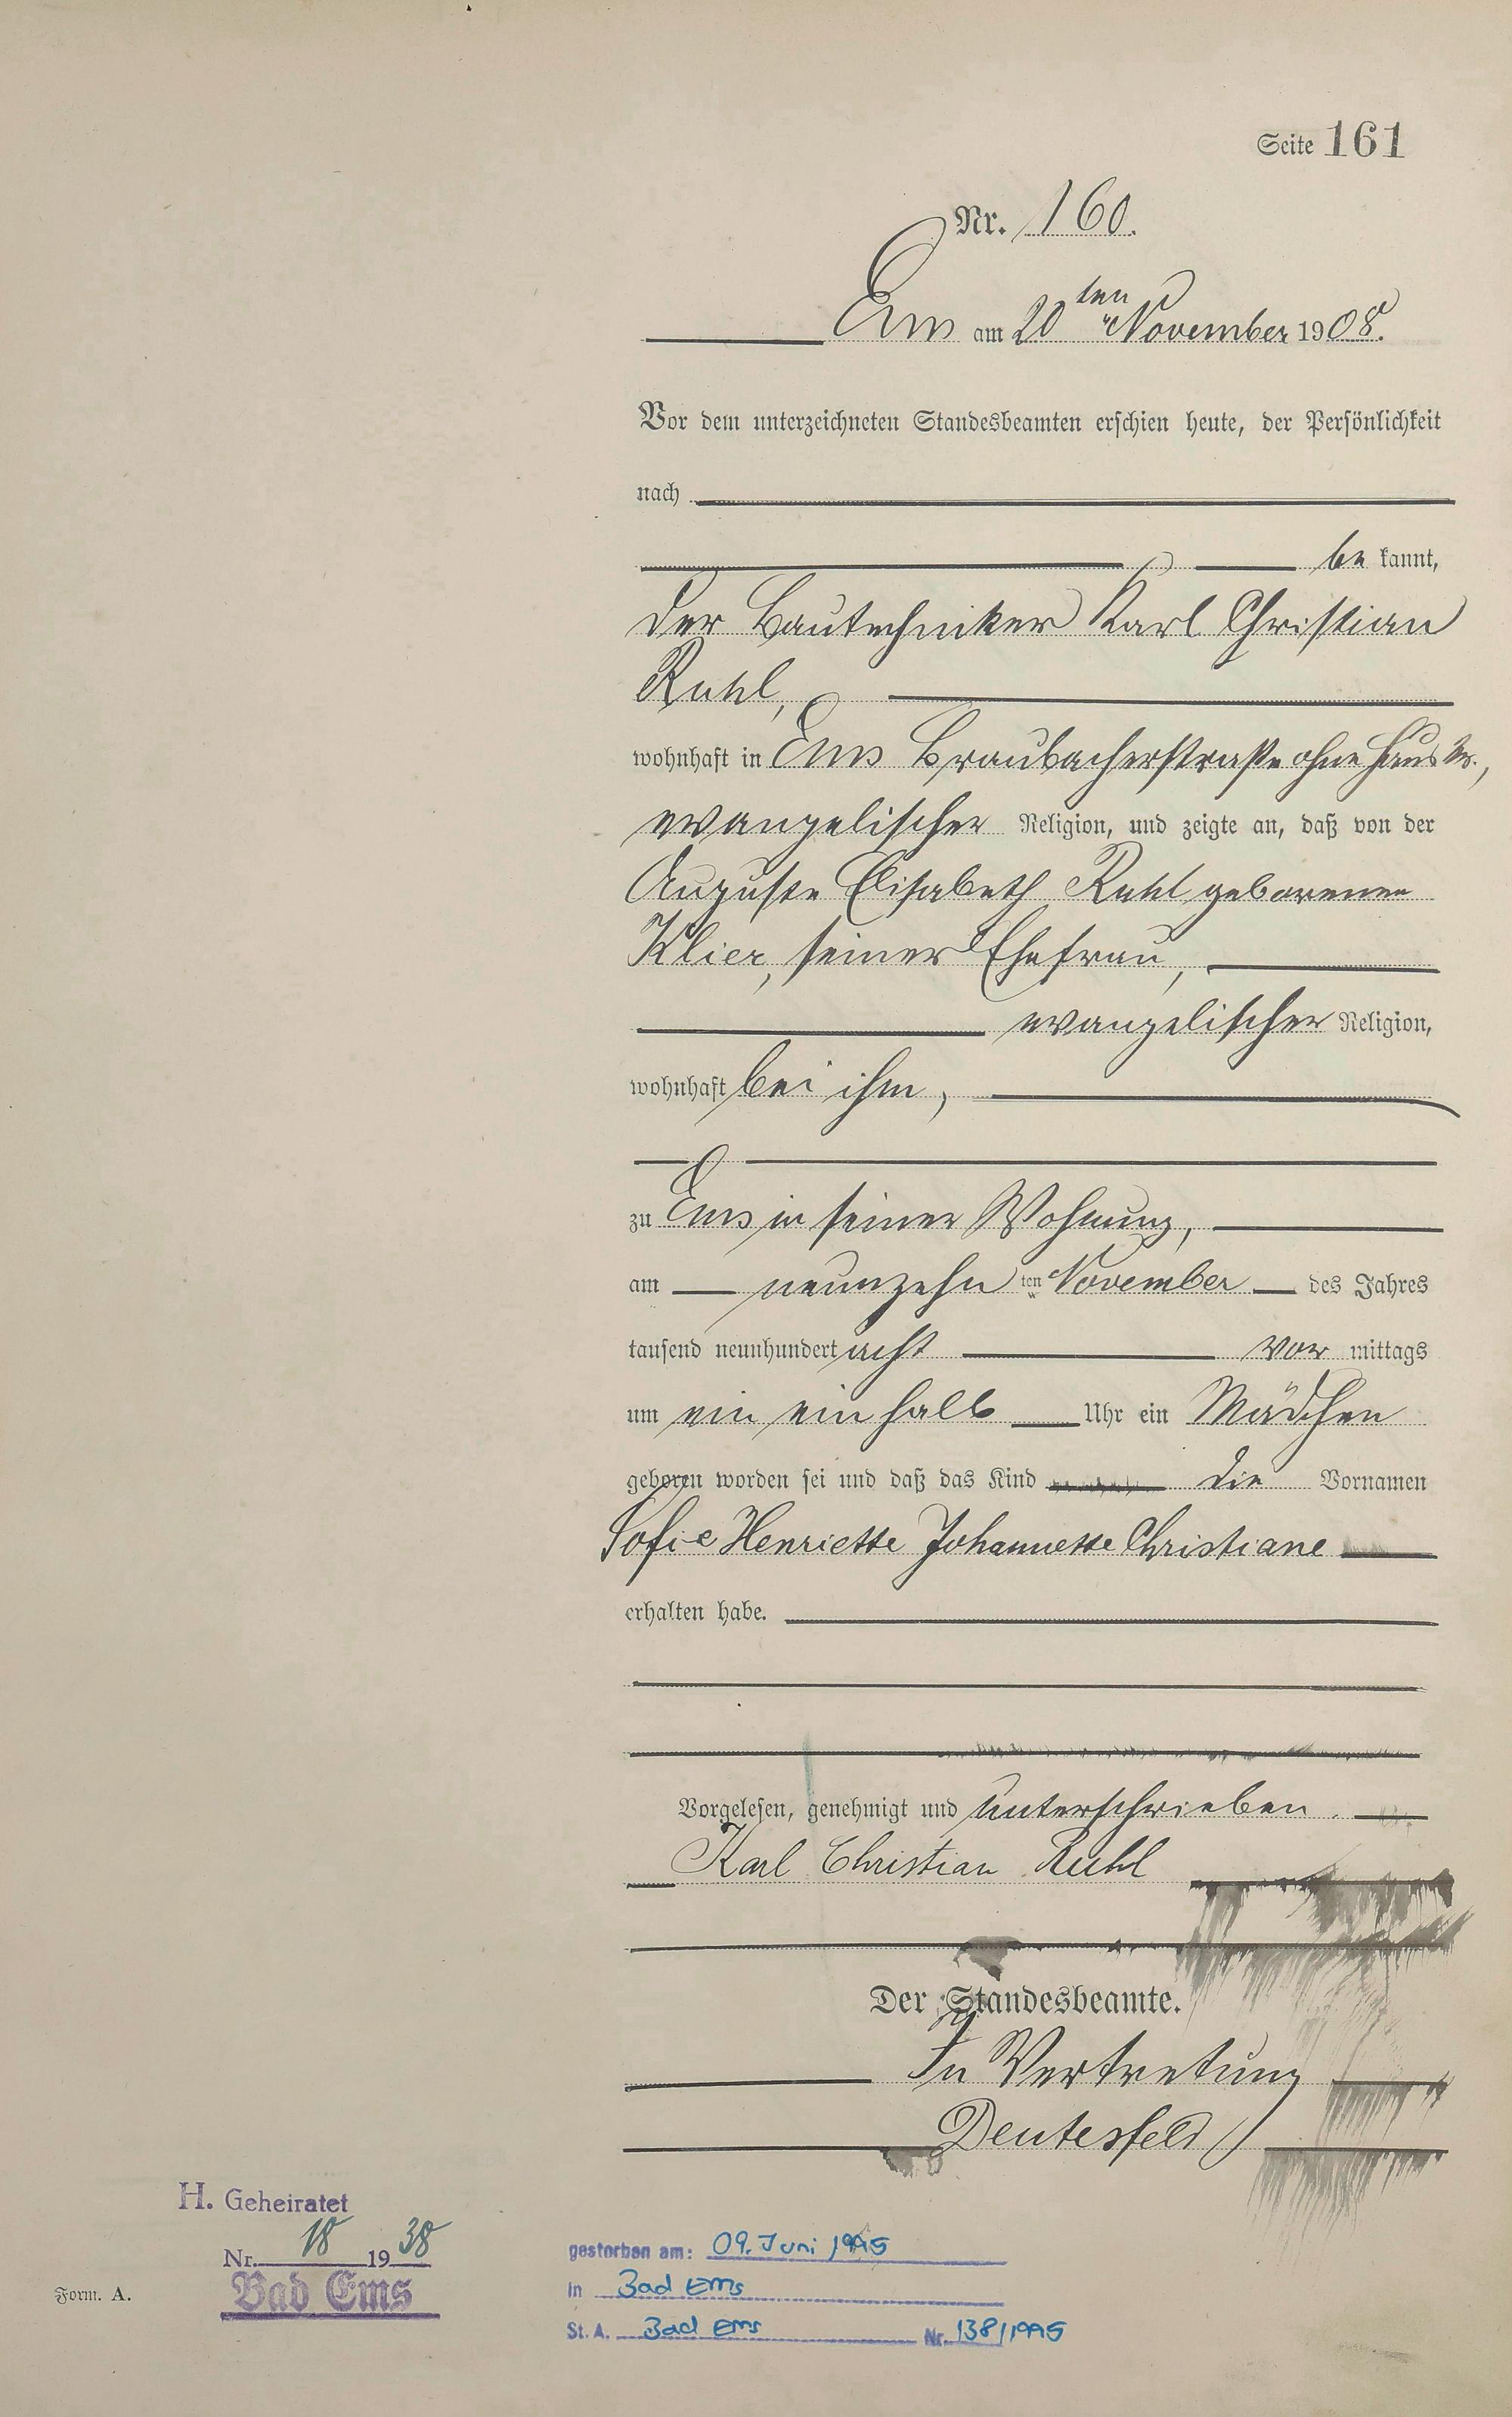 Seite 161
Nr. 160.
Ems am 20ten November 1908.
Vor dem unterzeichneten Standesbeamten erschien heute, der Persönlichkeit
nach
be kannt,
der Bautechniker Karl Christian
Ruhl,
wohnhaft in Ems Braubacherstraße ohne Haus Nr.,
evangelischer Religion, und zeigte an, daß von der
Auguste Elisabeth Ruhl geborenen
Klier, seiner Ehefrau,
evangelischer Religion,
wohnhaft bei ihm,
zu Ems in seiner Wohnung,
am neunzehn ten November des Jahres
tausend neunhundert acht vor mittags
um ein einhalb Uhr ein Mädchen
geboren worden sei und daß das Kind die Vornamen
Sofie Henriette Johannette Christiane
erhalten habe.
Vorgelesen, genehmigt und unterschrieben.
Karl Christian Ruhl
Der Standesbeamte.
In Vertretung
Deutesfeld
H. Geheiratet
Nr. 18 1938
Bad Ems
Form. A.
gestorben am: 09. Juni 1995
in Bad Ems
St. A. Bad Ems Nr. 138/1995